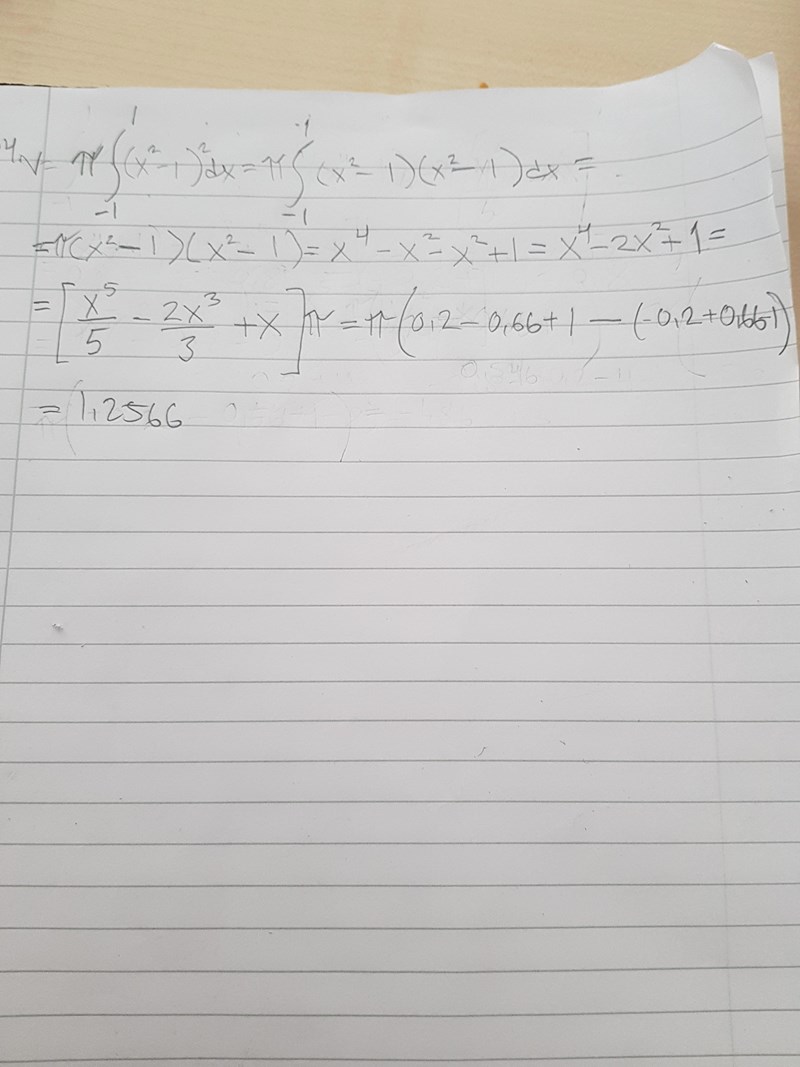 4. V = π∫₋₁¹ (x²-1)² dx = π∫₋₁⁻¹ (x²-1)(x²-1) dx =
= π(x²-1)(x²-1) = x⁴ - x² - x² + 1 = x⁴ - 2x² + 1 =
= [x⁵/5 - 2x³/3 + x] π = π(0,2 - 0,66 + 1 - (-0,2 + 0,66-1)
= 1,2566